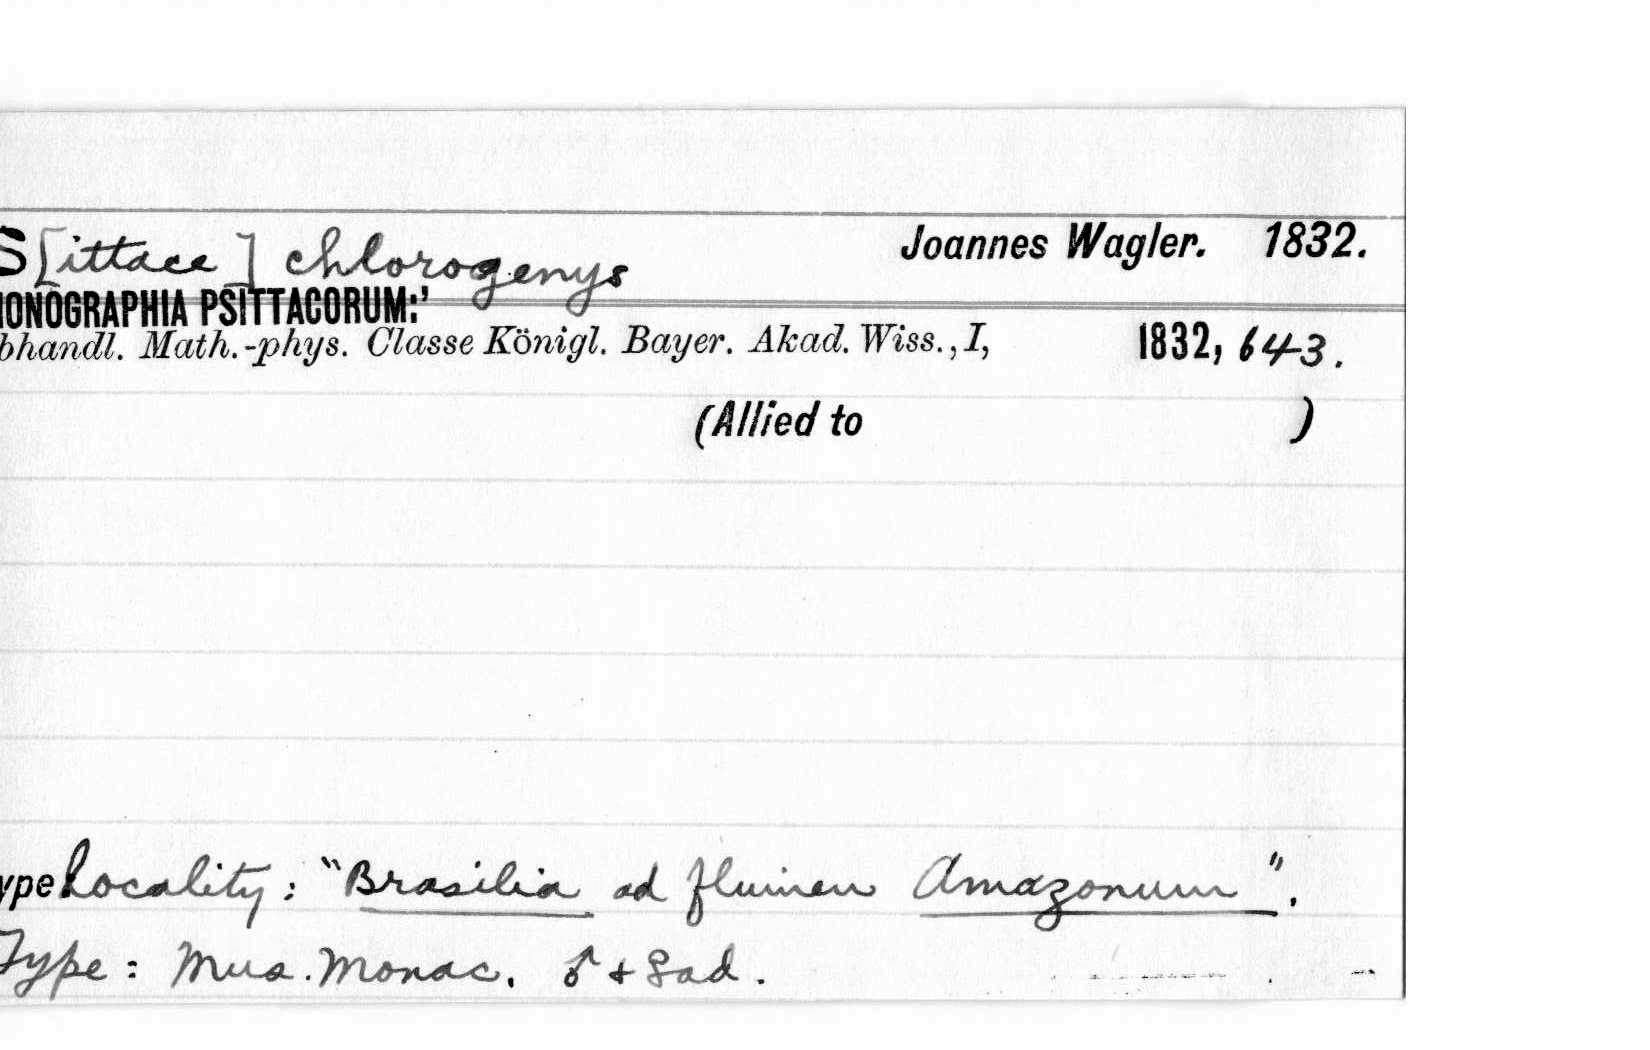 S[ittace] chlorogenys Joannes Wagler. 1832.
ONOGRAPHIA PSITTACORUM:'
bhandl. Math.-phys. Classe Königl. Bayer. Akad. Wiss., I, 1832, 643.
(Allied to )
ype Locality: "Brasilia ad flumen Amazonum".
Type: Mus. Monac. ♂ + ♀ ad.